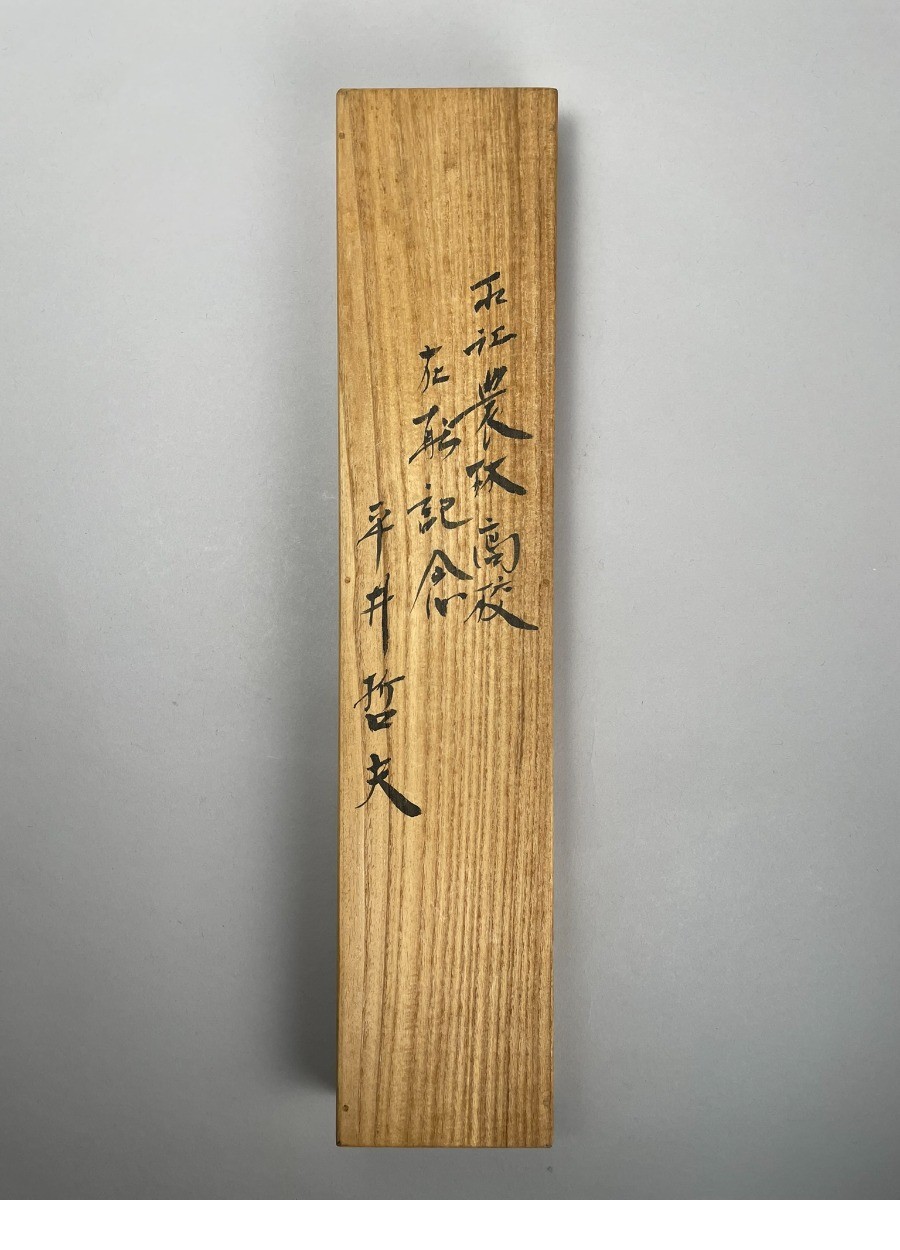 松江農林高校
在職記念
平井哲夫